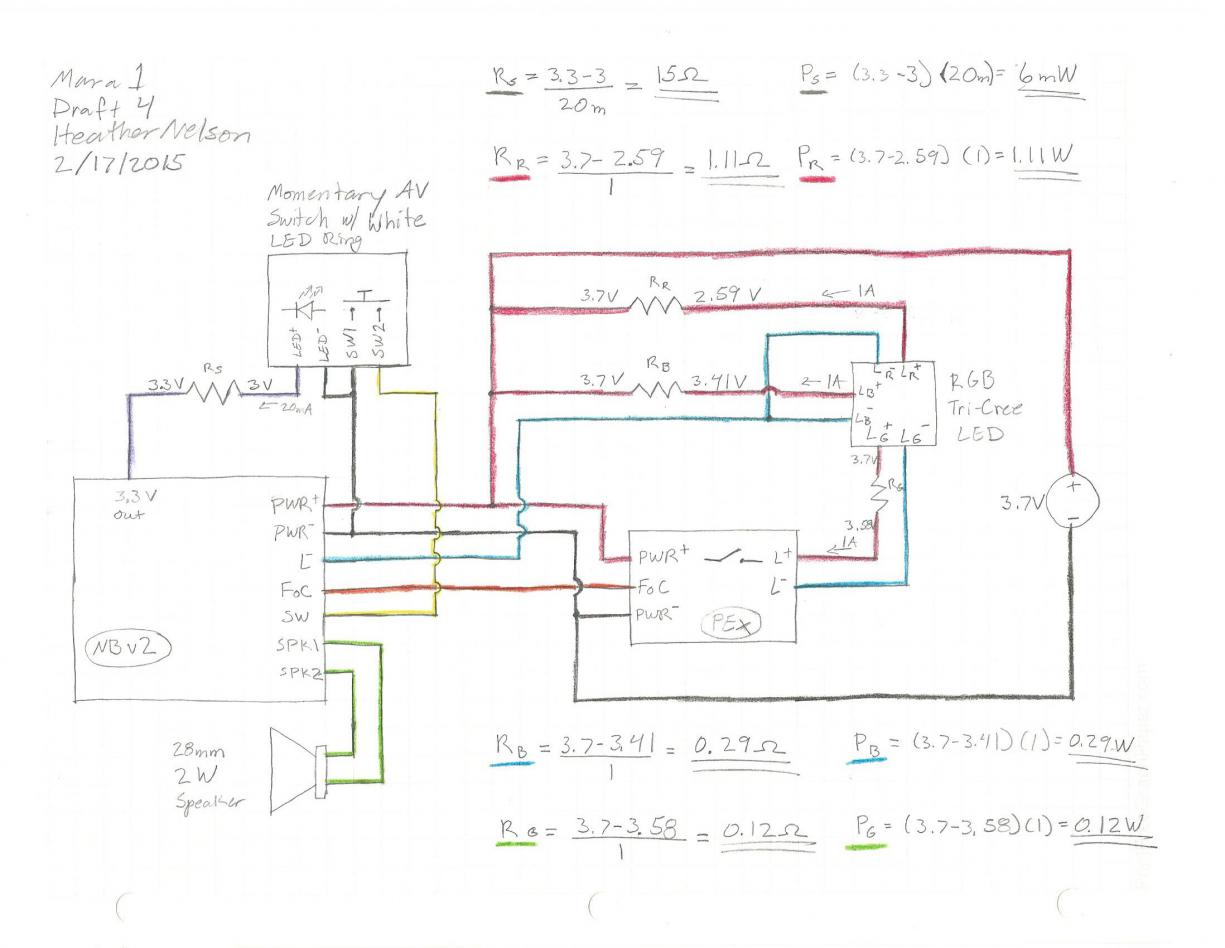 Mara 1
Draft 4
Heather Nelson
2/17/2015
Rs = 3.3-3 / 20m = 15Ω
Ps = (3.3-3) (20m) = 6mW
RR = 3.7-2.59 / 1 = 1.11Ω
PR = (3.7-2.59) (1) = 1.11W
Momentary AV
Switch w/ White
LED Ring
LED+
LED-
SW1
SW2
3.3V
Rs
3V
← 20mA
3.7V
RR
2.59 V
← 1A
3.7V
RB
3.41V
← 1A
LR-
LR+
LB+
LB-
LG+
LG-
RGB
Tri-Cree
LED
3.7V
RG
3.58
← 1A
3.7V
+
-
3.3V
out
PWR+
PWR-
L-
FoC
SW
SPK1
SPK2
NBv2
PWR+
FoC
PWR-
L+
L-
PEx
28mm
2W
Speaker
RB = 3.7-3.41 / 1 = 0.29Ω
PB = (3.7-3.41) (1) = 0.29W
RG = 3.7-3.58 / 1 = 0.12Ω
PG = (3.7-3.58) (1) = 0.12W